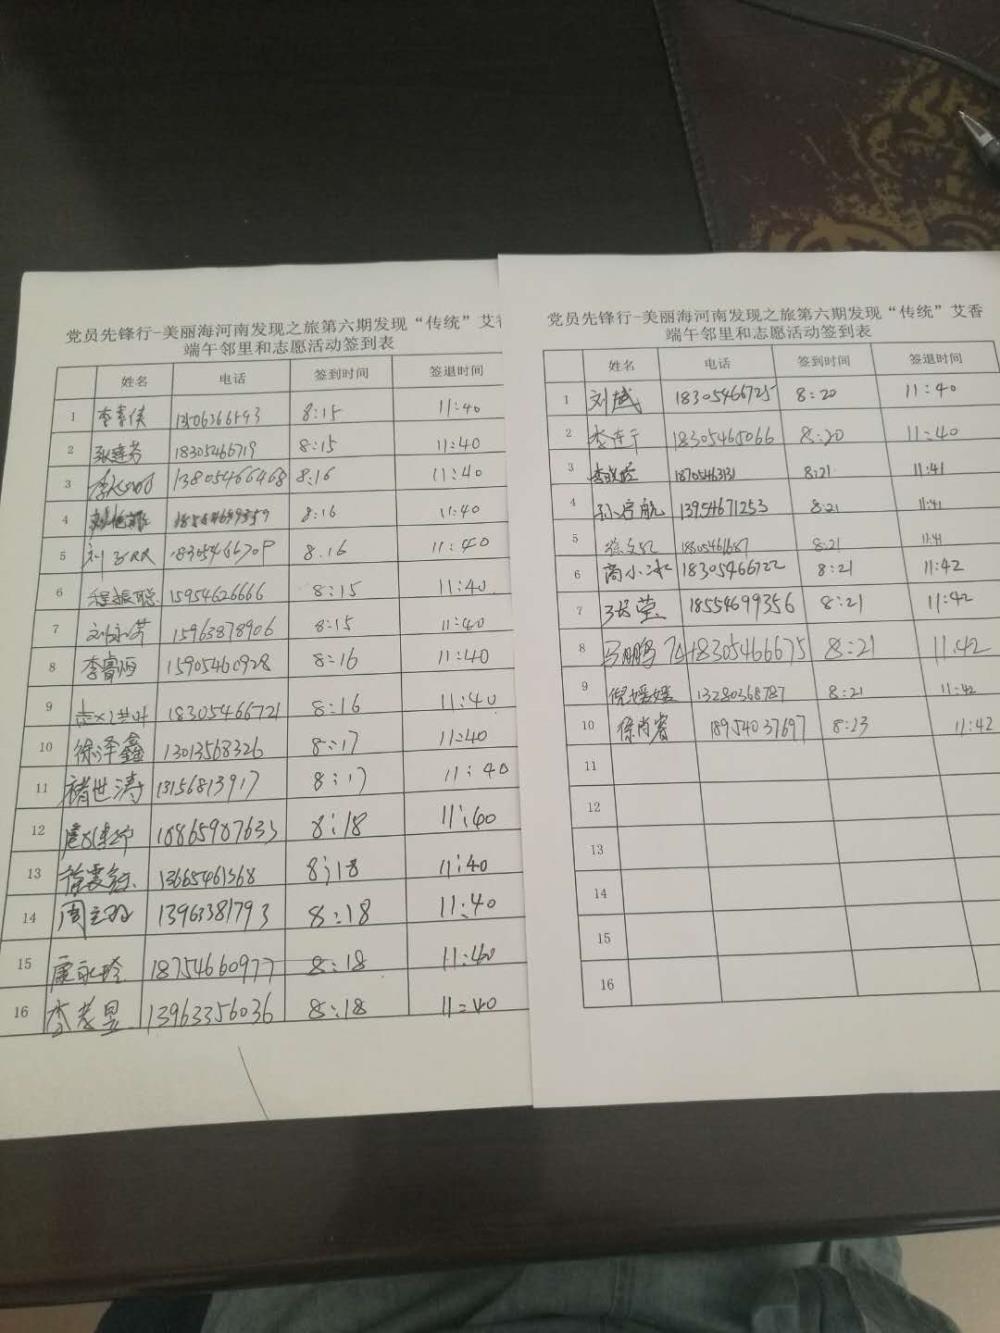 党员先锋行-美丽海河南发现之旅第六期发现“传统”艾香
端午邻里和志愿活动签到表
姓名 电话 签到时间 签退时间
1 李素侠 8:15 11:40
2 18305466719 8:15 11:40
3 13805466468 8:16 11:40
4 8:16 11:40
5 8:16 11:40
6 程振聪 15954626666 8:15 11:40
7 刘永芳 15963878906 8:15 11:40
8 李睿恒 15905460928 8:16 11:40
9 18305466721 8:16 11:40
10 徐泽鑫 13013568326 8:17 11:40
11 褚世涛 13156813917 8:17 11:40
12 8:18 11:40
13 13665461368 8:18 11:40
14 13963381793 8:18 11:40
15 18754660977 8:18 11:40
16 13963356036 8:18 11:40
党员先锋行-美丽海河南发现之旅第六期发现“传统”艾香
端午邻里和志愿活动签到表
姓名 电话 签到时间 签退时间
1 刘斌 18305466725 8:20 11:40
2 18305465066 8:20 11:40
3 8:21 11:41
4 孙宇航 13954671253 8:21 11:41
5 8:21 11:41
6 商小冰 18305466722 8:21 11:42
7 张莹 18554699356 8:21 11:42
8 马鹏 18305466675 8:21 11:42
9 倪媛媛 13280368787 8:21 11:42
10 徐肖睿 18954037697 8:23 11:42
11
12
13
14
15
16